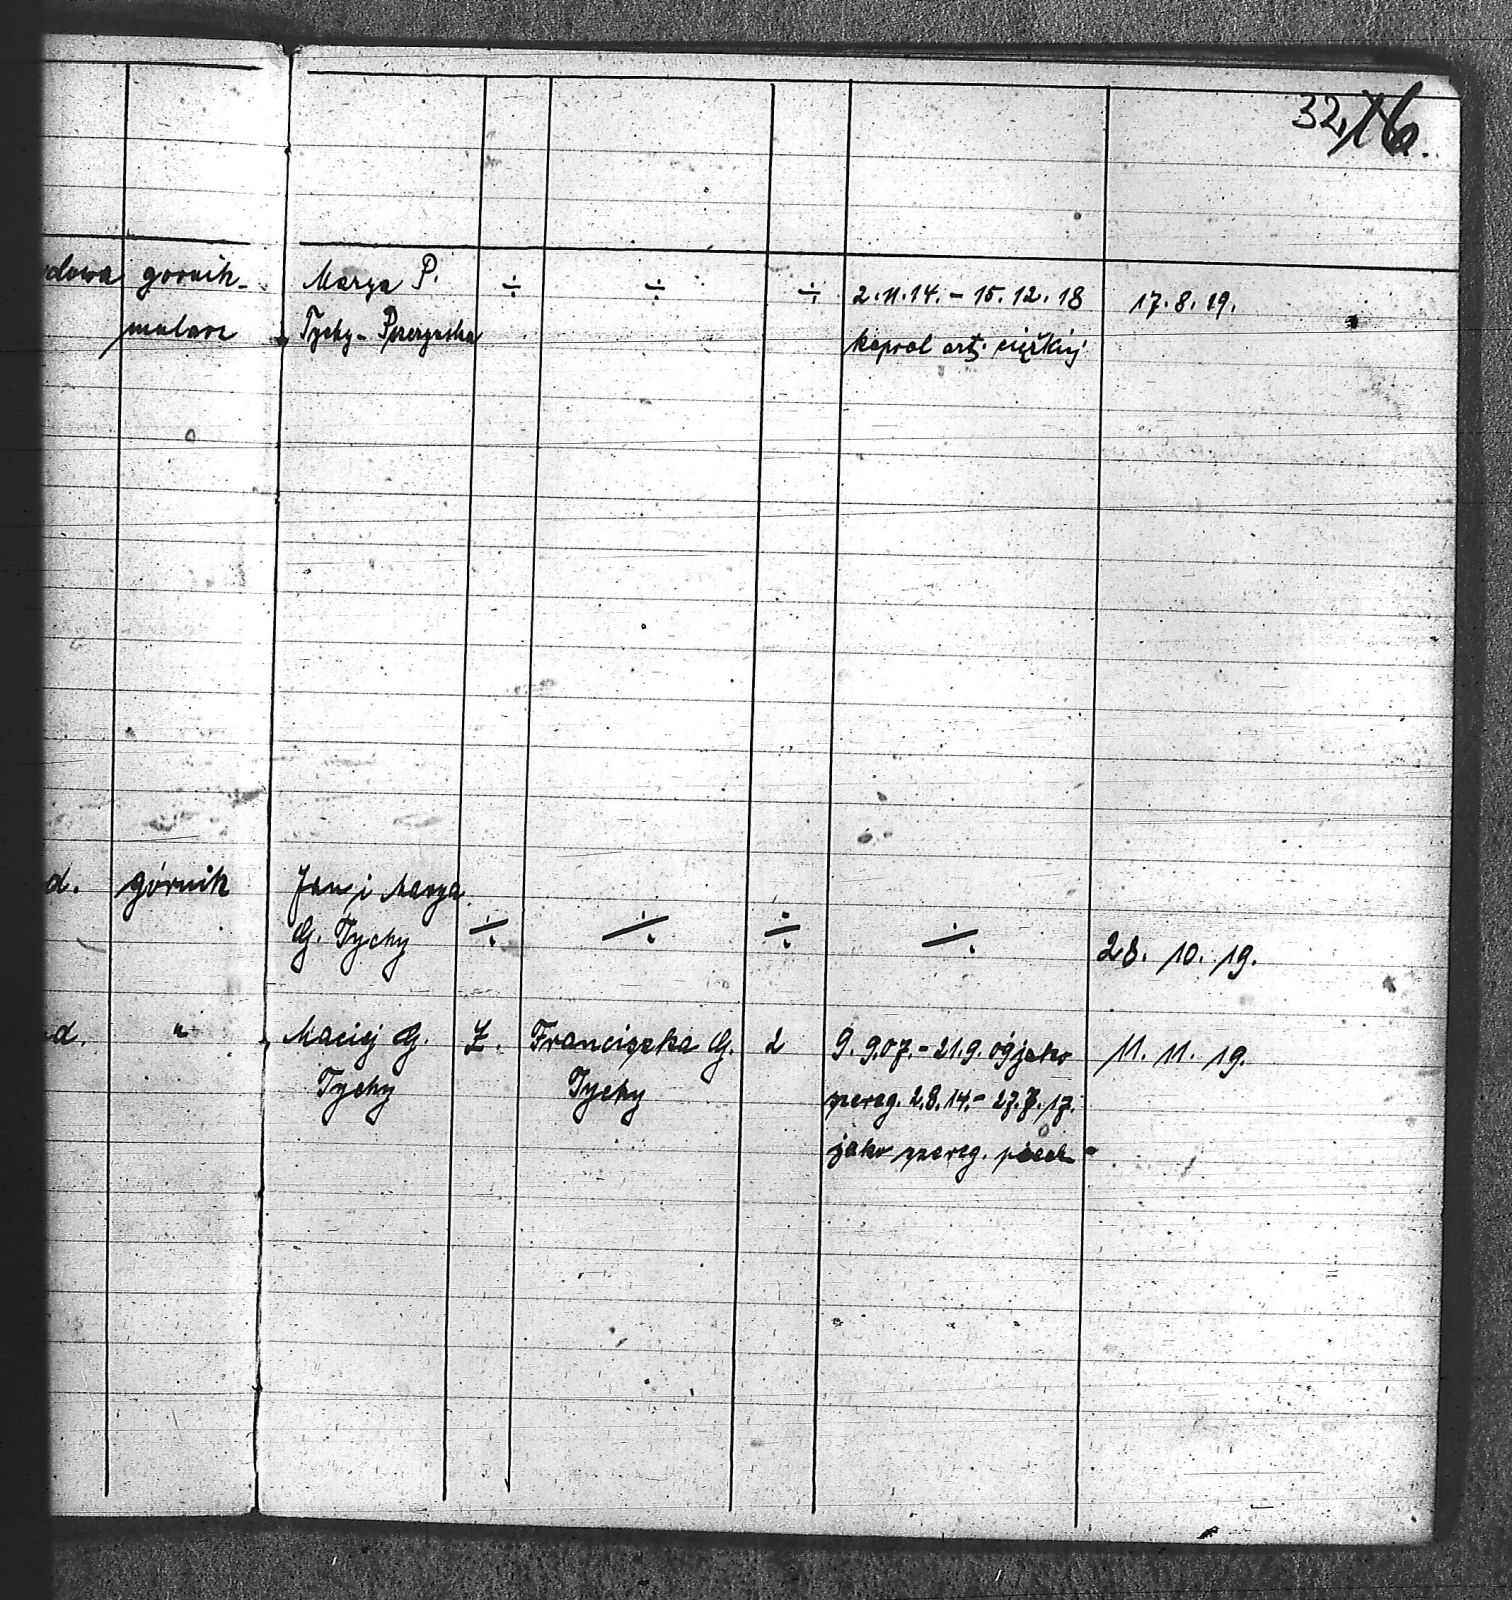 32
16.
dowa górnik- Marya P. ÷ ÷ ÷ 2.11.14. - 15.12.18 17.8.19.
malarz Tychy- kaprol art. ciężkiej
d. górnik Jan i Marya
G. Tychy ÷ ÷ ÷ ÷ 28. 10. 19.
d. " Maciej G. Ż. Franciszka G. 2 9.9.07. - 21.9.09 jako 11. 11. 19.
Tychy Tychy szereg. 2.8.14. - 27.7.17.
jako szereg. piech.